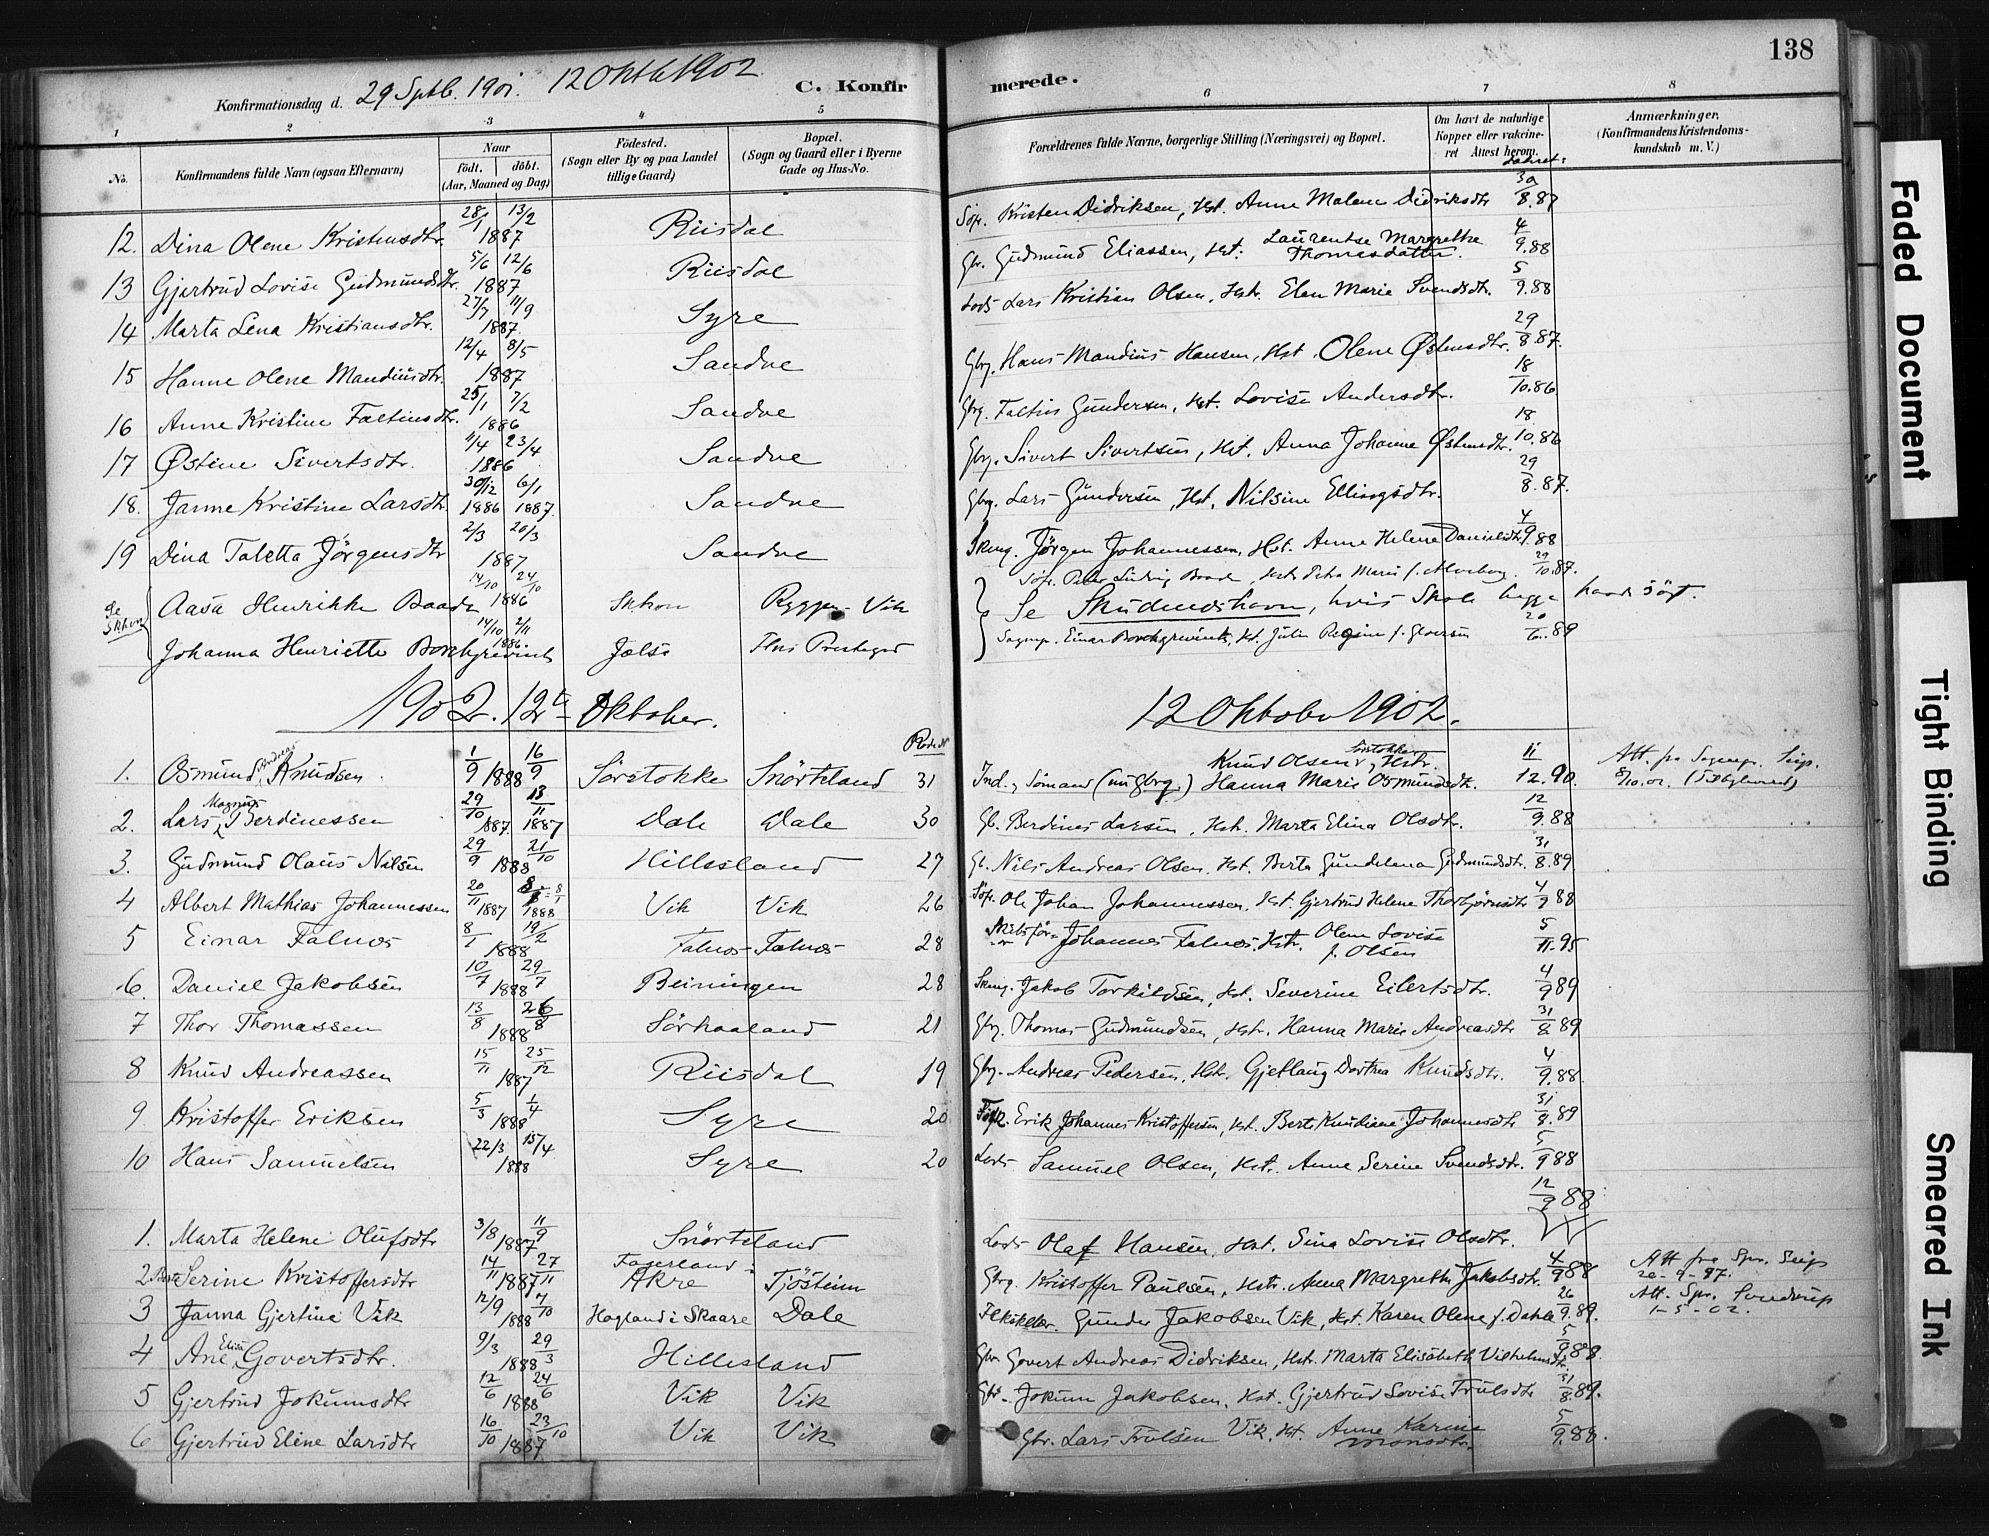 138
Konfirmationsdag d. 29 Septb. 1901. 12 Oktb 1902 C. Konfir merede.
1 2 3 4 5 6 7 8
No. Konfirmandens fulde Navn (ogsaa Efternavn) Naar født. døbt. (Aar, Maaned og Dag) Fødested. (Sogn eller By og paa Landet tillige Gaard) Bopæl. (Sogn og Gaard eller i Byerne Gade og Hus-No. Forældrenes fulde Navne, borgerlige Stilling (Næringsvei) og Bopæl. Om havt de naturlige Kopper eller vakcineret Attest herom. Anmærkninger. (Konfirmandens Kristendomskundskab m. V.)
12. Dina Olene Kristensdtr. 28/1 13/2 1887 Riisdal Søf. Kristen Didriksen, Hst. Anne Malene Didriksdtr 30/8.87
13 Gjertrud Lovise Gudmundsdtr. 5/6 12/6 1887 Riisdal Gbr. Gudmund Eliassen, Hst. Laurentse Margrethe Thomasdatter. 4/9.88
14 Marta Lena Kristiansdtr. 27/7 11/9 1887 Syre Lods Lars Kristian Olsen, Hstr. Elen Marie Svendsdtr. 5/9.88
15 Hanne Olene Mandiusdtr. 12/4 8/5 1887 Sandve Gbrg. Hans Mandius Hansen, Hst. Olene Østensdtr. 29/8 87.
16 Anne Kristine Faltinsdtr. 25/1 7/2 1886 Sandve Gbrg. Faltin Gundersen, Hst. Lovise Andersdtr. 18/10.86
17 Østine Sivertsdtr. 11/4 23/4 1886 Sandve Gbrg. Sivert Sivertsen, Hst. Anna Johanne Østensdtr. 18/10.86
18. Janne Kristine Larsdtr 30/12 6/1 1886 1887. Sandve Gbrg. Lars Gundersen, Hst. Nilsine Ellingsdtr. 29/8.87.
19 Dina Taletta Jörgensdtr 2/3 20/3 1887 Sandve Skmg. Jørgen Johannessen, Hst. Anne Helene Danielsdtr 4/9 88
Se Skhvn Aasa Henrikke Baade 14/10 24/10 1886 Skhvn Rygge-Vik 29/10.87.
Se Skudeneshavn, hvis Skole begge havde søgt.
Johanna Henriette Borchgrevink 14/10 2/11 1886 Jelse Sognep. Einar Borchgrevink, Hst. Julie Regine f. 20/6.89
1902. 12te Oktober. 12 Oktober 1902.
1. Osmund Andreas Knudsen. 1/9 16/9 1888 Sörstokke Snörteland 31 Ind., Sömand (nu gbrg.) Knud Olsen Sörstokke, Hstr. Hanna Marie Osmundsdtr. 11/12.90. Att. fra Sogenpr. Seip. 8/10.02.
2. Lars Magnus Berdinessen 29/10 1887. 13/11 1887 Dale Dale 30 Gb. Berdines Larsen, Hst. Marta Elina Olsdtr. 12/9.88
3. Gudmund Olaus Nilsen 29/9 21/10 1888 Hillesland 27 Gb. Nils Andreas Olsen, Hst. Berta Gundelena Gudmundsdtr. 31/8.89.
4 Albert Mathias Johannessen 20/11 1887 8/1 1888 Vik Vik 26 Söf. Ole Johan Johannessen, Hst. Gjertrud Helene Thorbjørnsdtr 4/9 88
5 Einar Falnes 8/1 19/2 1888 Falnes Falnes 28 Johannes Falnes, Hstr. Olene Lovise f. Olsen 5/11.95
6. Daniel Jakobsen 10/7 29/7 1888 Beiningen 28 Skmg. Jakob Torkildsen, Hst. Severine Eilertsdtr. 4/9 89
7 Thor Thomassen 13/8 26/8 1888 Sörhaaland 21 Gbrg. Thomas Gudmundsen, Hstr. Hanna Marie Andreasdtr 31/8 89
8 Knud Andreassen 15/11 25/12 1887 Riisdal 19 Gbrg. Andreas Pedersen, Hstr. Gjetlaug Dortea Knudsdtr. 4/9.88.
9 Kristoffer Eriksen 5/3 1/4 1888 Syre 20 Erik Johannes Kristoffersen, Hst. Berte Knudiane Johannesdtr 31/8.89
10 Hans Samuelsen 22/3 15/4 1888 Syre 20 Lods Samuel Olsen, Hstr. Anne Serine Svendsdtr. 5/9 88
12/9 88
1. Marta Helene Olufsdtr 3/8 11/9 1887 Snörteland Lods Olaf Hansen, Hst. Sina Lovise Olsdtr.
2 Serine Kristoffersdtr 14/11 27/11 1887 Fagerland Åkre Tjöstheim Gbrg. Kristoffer Paulsen, Hstr. Anna Margrethe Jakobsdtr. 4/9 88 Att fra Spr. Seip 20-9-97.
3 Janna Gjertine Vik 12/9 7/10 1888 Hagland i Skaare Dale Gunder Jakobsen Vik, Hst. Karen Olene f. Dahle 26/9.89. Att. Spr. 1-5-02.
4 Ane Elise Govertsdtr. 9/3 29/3 1888 Hillesland Gbr Govert Andreas Didriksen, Hstr. Marta Elisabeth Vilhelmsdtr. 5/9 88.
5 Gjertrud Jokumsdtr 12/6 24/6 1888 Vik Vik Gbr. Jokum Jakobsen, Hst. Gjertrud Lovise Trulsdtr 31/8.89.
6 Gjertrud Eline Larsdtr 16/10 23/10 1887 Vik Vik Gbr. Lars Trulsen Vik, Hst. Anne Karine Monsdtr. 5/9.88.
Faded Document
Tight Binding
Smeared Ink